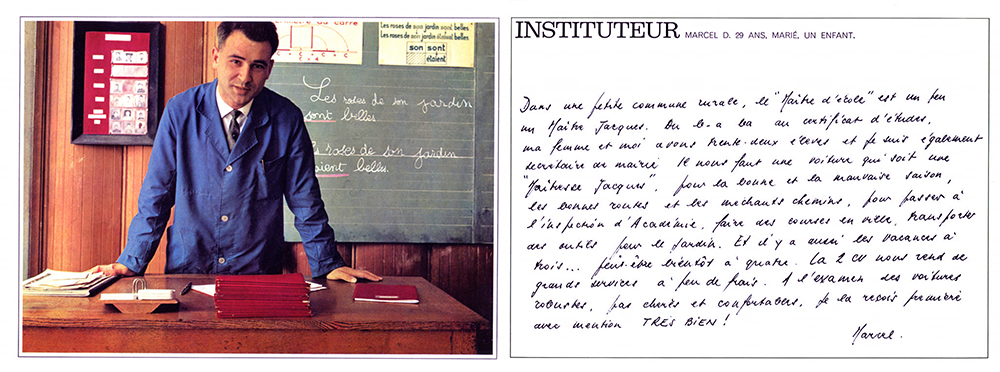 du carré
Les roses de son jardin sont belles.
Les roses de son jardin étaient belles.
son sont
étaient
Les roses de son jardin
sont belles
roses de son jardin
aient belles.
INSTITUTEUR MARCEL D. 29 ANS, MARIÉ, UN ENFANT.
Dans une petite commune rurale, le "Maître d'école" est un peu
un Maître Jacques. Du b-a ba au certificat d'études,
ma femme et moi avons trente-deux élèves et je suis également
secrétaire de mairie. Il nous faut une voiture qui soit une
"Maîtresse Jacques", pour la bonne et la mauvaise saison,
les bonnes routes et les méchants chemins, pour passer à
l'inspection d'Académie, faire des courses en ville, transporter
des outils pour le jardin. Et il y a aussi les vacances à
trois... peut-être bientôt à quatre. La 2 CV nous rend de
grands services à peu de frais. A l'examen des voitures
robustes, pas chères et confortables, je la reçois première
avec mention TRES BIEN !
Marcel.